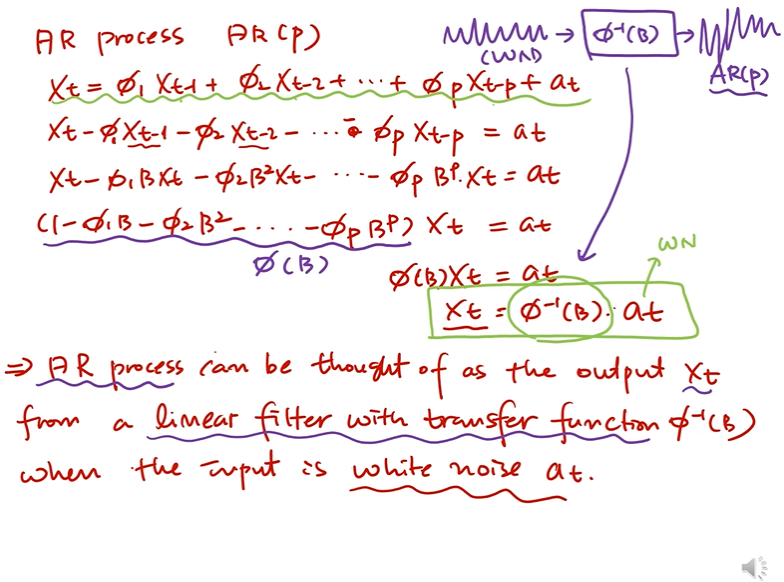 AR process AR(p)
(WN) → ϕ⁻¹(B) → AR(p)
Xt = ϕ₁ Xt-1 + ϕ₂ Xt-2 + ... + ϕp Xt-p + at
Xt - ϕ₁Xt-1 - ϕ₂ Xt-2 - ... - ϕp Xt-p = at
Xt - ϕ₁BXt - ϕ₂B²Xt - ... - ϕp Bᵖ·Xt = at
(1 - ϕ₁B - ϕ₂B² - ... - ϕp Bᵖ) Xt = at
ϕ(B)
WN
ϕ(B)Xt = at
Xt = ϕ⁻¹(B)· at
⇒ AR process can be thought of as the output Xt
from a linear filter with transfer function ϕ⁻¹(B)
when the input is white noise at.